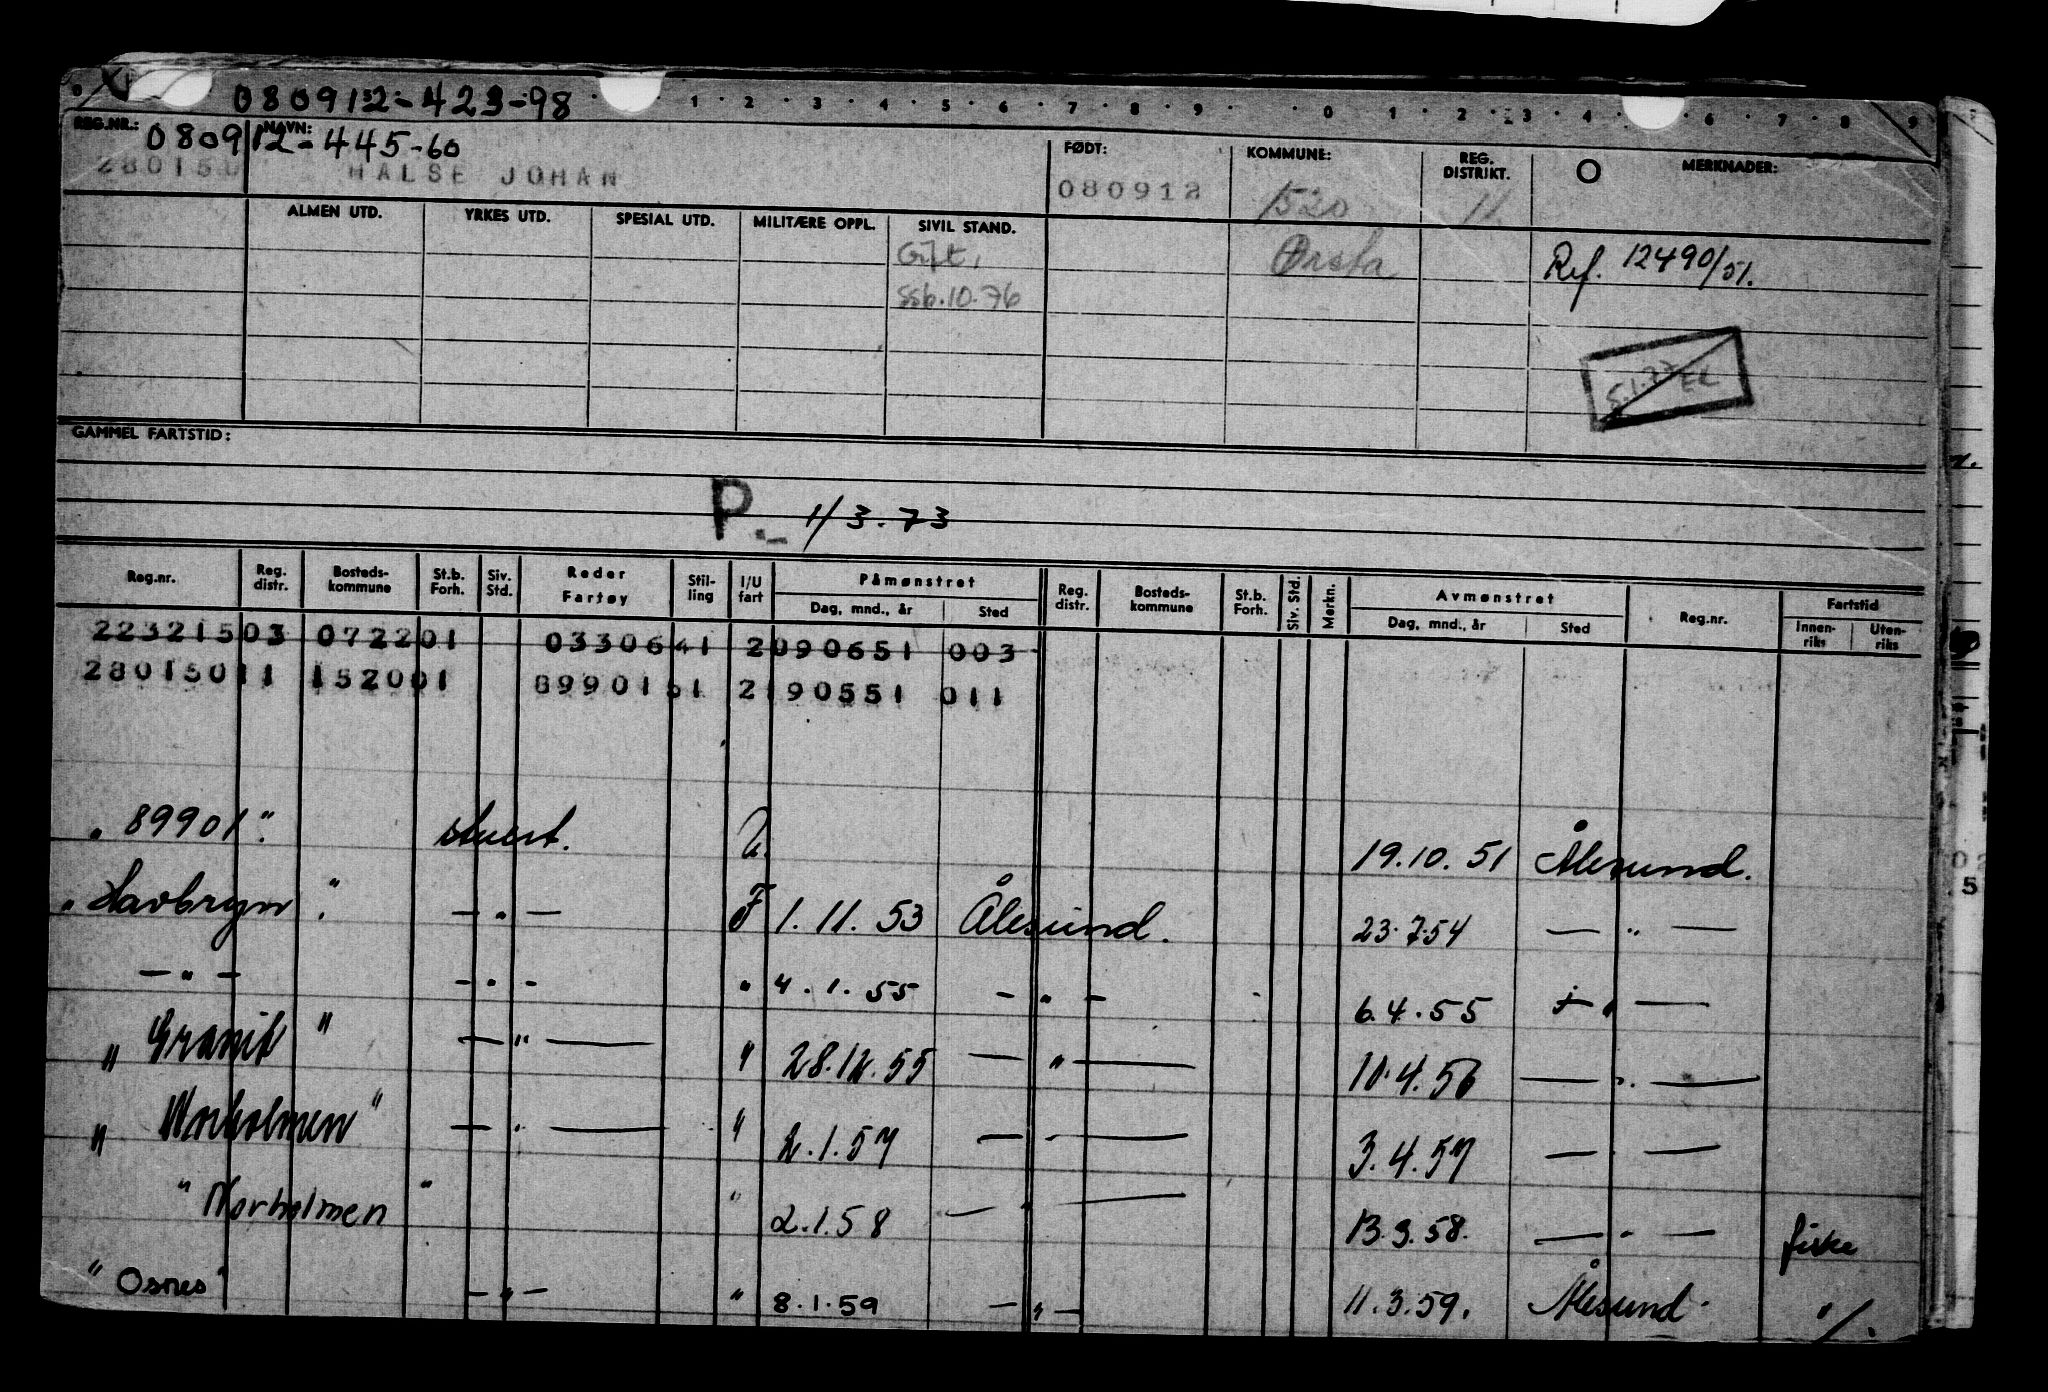 080912-423-98
1 2 3 4 5 6 7 8 9 0 1 2 3 4 6 7 8 9
REG.NR.: 080912-445-60 NAVN: FØDT: KOMMUNE: REG. DISTRIKT. O MERKNADER:
280150 HALSE JOHAN 080912 1520 11
ALMEN UTD. YRKES UTD. SPESIAL UTD. MILITÆRE OPPL. SIVIL STAND.
Gift, Ørsta Ref. 12490/51.
ssb.10.76
5.1.77 EL
GAMMEL FARTSTID:
P. 1/3.73
Reg.nr. Reg. distr. Bosteds-kommune St.b. Forh. Siv. Std. Reder Fartøy Stil-ling I/U fart Påmønstret Reg. distr. Bosteds-kommune St.b. Forh. Siv. Std. Merkn. Avmønstret Reg.nr. Fartstid
Dag, mnd., år Sted Dag, mnd., år Sted Innen-riks Uten-riks
22321503 072201 0330641 2090651 003
28015011 152001 8990151 2190551 011
"89901" U. 19.10.51 Ålesund.
"Havbryn" — " — F 1.11.53 Ålesund. 23.7.54 — " —
— " — — " — " 4.1.55 — " — 6.4.55 — " —
"Granit" — " — " 28.12.55 — " — 10.4.56 — " —
"Norholmen" — " — " 2.1.57 — " — 3.4.57 — " —
"Norholmen" " 2.1.58 — " — 13.3.58. — " — fiske
"Osnes" — " — " 8.1.59 — " — 11.3.59. Ålesund. " /.